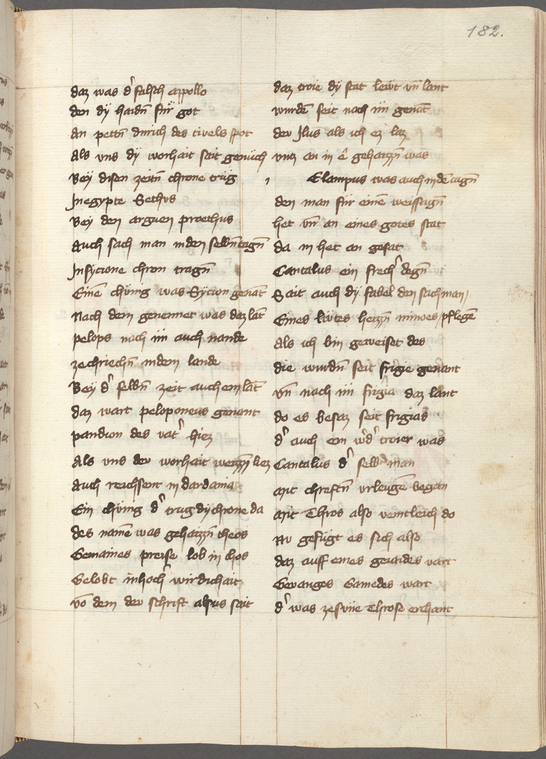 182.
daz was d' falsch appollo
den dy haidn̄ für got
an pettn̄ durich des tivels spot
als uns dy worhait seit genüch
Bey disen zeitn̄ chrone trüg
Jn egypte Sethus
Bey den arguen proethus
Auch sach man in den selbn̄ tagn̄
Jn sycione chron tragn̄
Einē chūnig was Sycion genāt
Nach dem genennet was daz lāt
pelops noch im auch nande
ze chriechn̄ in dem lande
Bey d' selbn̄ zeit auch ein lāt
daz wart peloponeus genant
pandion des vat' hiez
Als uns der worhait
Auch reichsent in dardania
Ein chünig d' trug dy chrone da
des name was gehaizzn̄ theos
Gemaines preise lob in chos
Gelobt in hoch' wirdichait
vō dem der schrift alsus seit
daz troie dy stat lewt vn̄ lant
wurdē seit noch im genāt
der Jlus als ich ez laz
unz an in ē gehaizzn̄ was
Elampus was auch in dē tagn̄
den man für eine weissagn̄
het vn̄ an eines gotes stat
da in het an gesat
Cantalus ein frech' degn̄
Seit auch dy fabel den sach man
Eines lewtes hetzn̄ pflegē
als ich bin geweiset des
die wurdn̄ seit frigie genant
vn̄ nach im frigia daz lant
do es besaz seit frigias
d' auch ein w'd' troier was
Cantalus d' selb man
mit chreftn̄ urleugē began
mit Thros also veintleich do
Nv gefügt es sich also
daz auff eines geiaides vart
Gevanges Ganedes wart
d' was ze sune Throse erchant